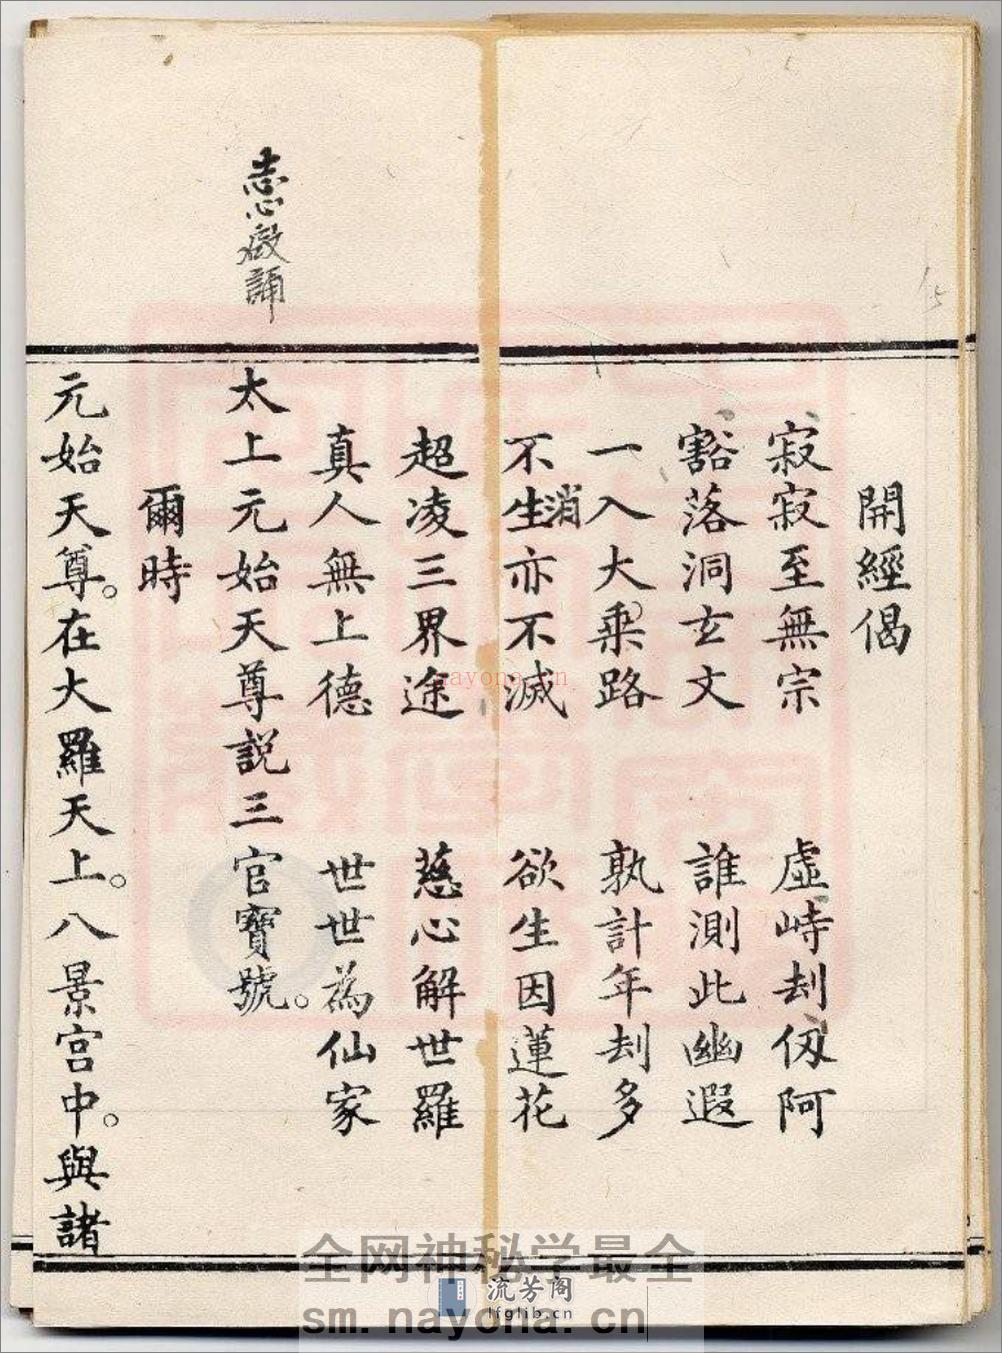 開經偈
寂寂至無宗　虛峙刦仞阿
豁落洞玄文　誰測此幽遐
一入大乘路　孰計年刦多
不生亦不滅　欲生因蓮花
消
超凌三界途　慈心解世羅
真人無上德　世世為仙家
志心啟誦
太上元始天尊説三官寳號。
爾時
元始天尊。在大羅天上。八景宫中。與諸
nayona.cn
全网神秘学最全
流芳阁
lfglib.cn
sm.nayona.cn